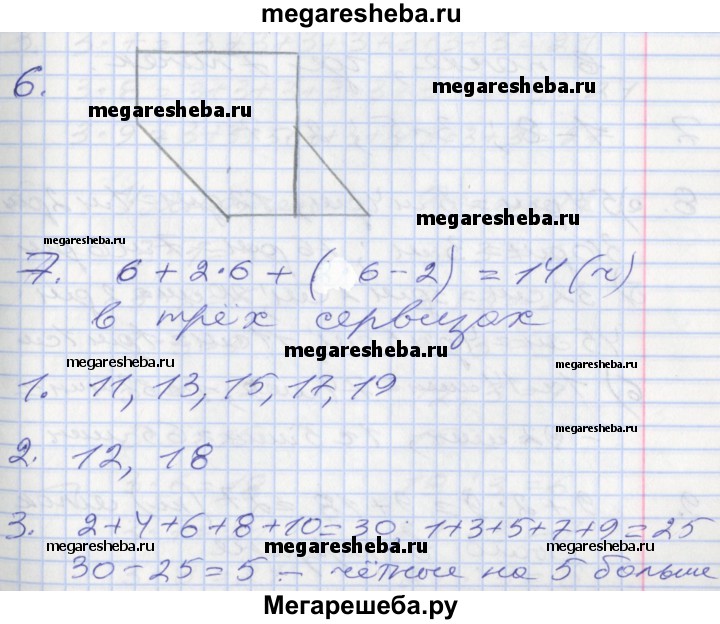 megaresheba.ru
6.
megaresheba.ru
megaresheba.ru
megaresheba.ru
megaresheba.ru
7. 6 + 2·6 + ( 6 - 2) = 14 (ч)
в трёх сервизах
megaresheba.ru
megaresheba.ru
megaresheba.ru
1. 11, 13, 15, 17, 19
megaresheba.ru
2. 12, 18
3. 2+4+6+8+10=30; 1+3+5+7+9=25
megaresheba.ru
megaresheba.ru
megaresheba.ru
30-25=5 - чётные на 5 больше
Мегарешеба.ру